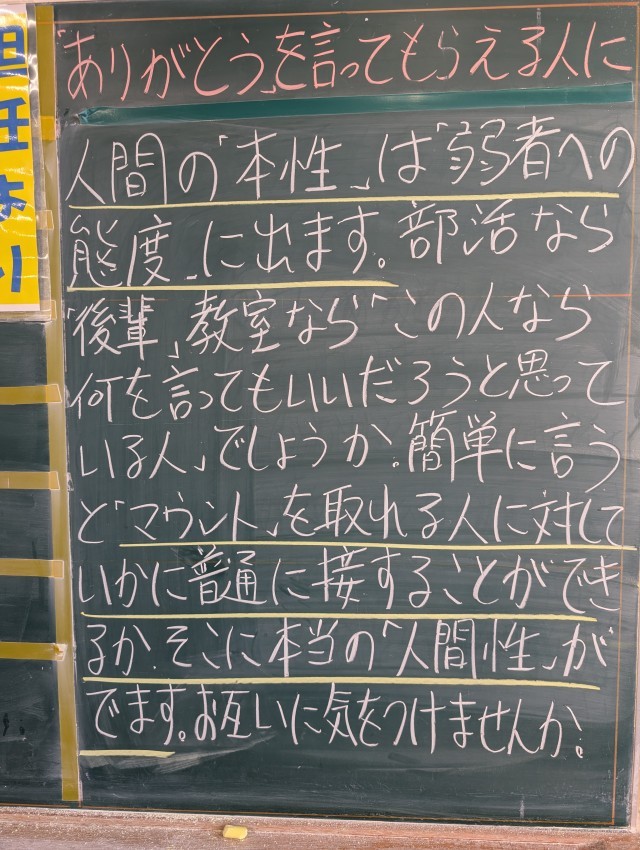 「ありがとう」を言ってもらえる人に
人間の「本性」は「弱者への
態度」に出ます。部活なら
「後輩」教室なら「この人なら
何を言ってもいいだろうと思って
いる人」でしょうか。簡単に言う
と「マウント」を取れる人に対して
いかに普通に接することができ
るか。そこに本当の「人間性」が
でます。お互いに気をつけませんか。
担任より